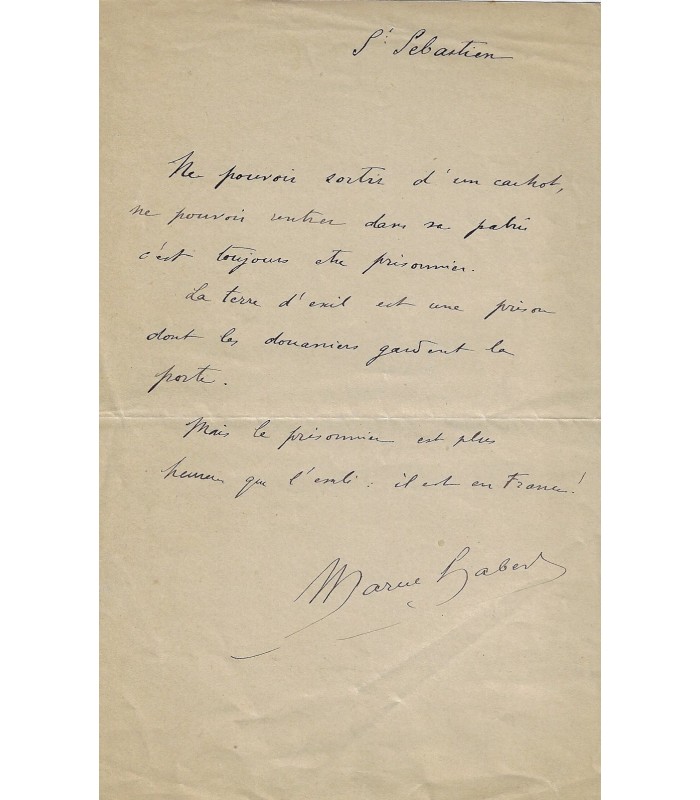 St Sebastien
Ne pouvoir sortir d'un cachot,
ne pouvoir rentrer dans sa patrie
c'est toujours etre prisonnier.
La terre d'exil est une prison
dont les douaniers gardent la
porte.
Mais le prisonnier est plus
heureux que l'exilé : il est en France !
Marcel Habert